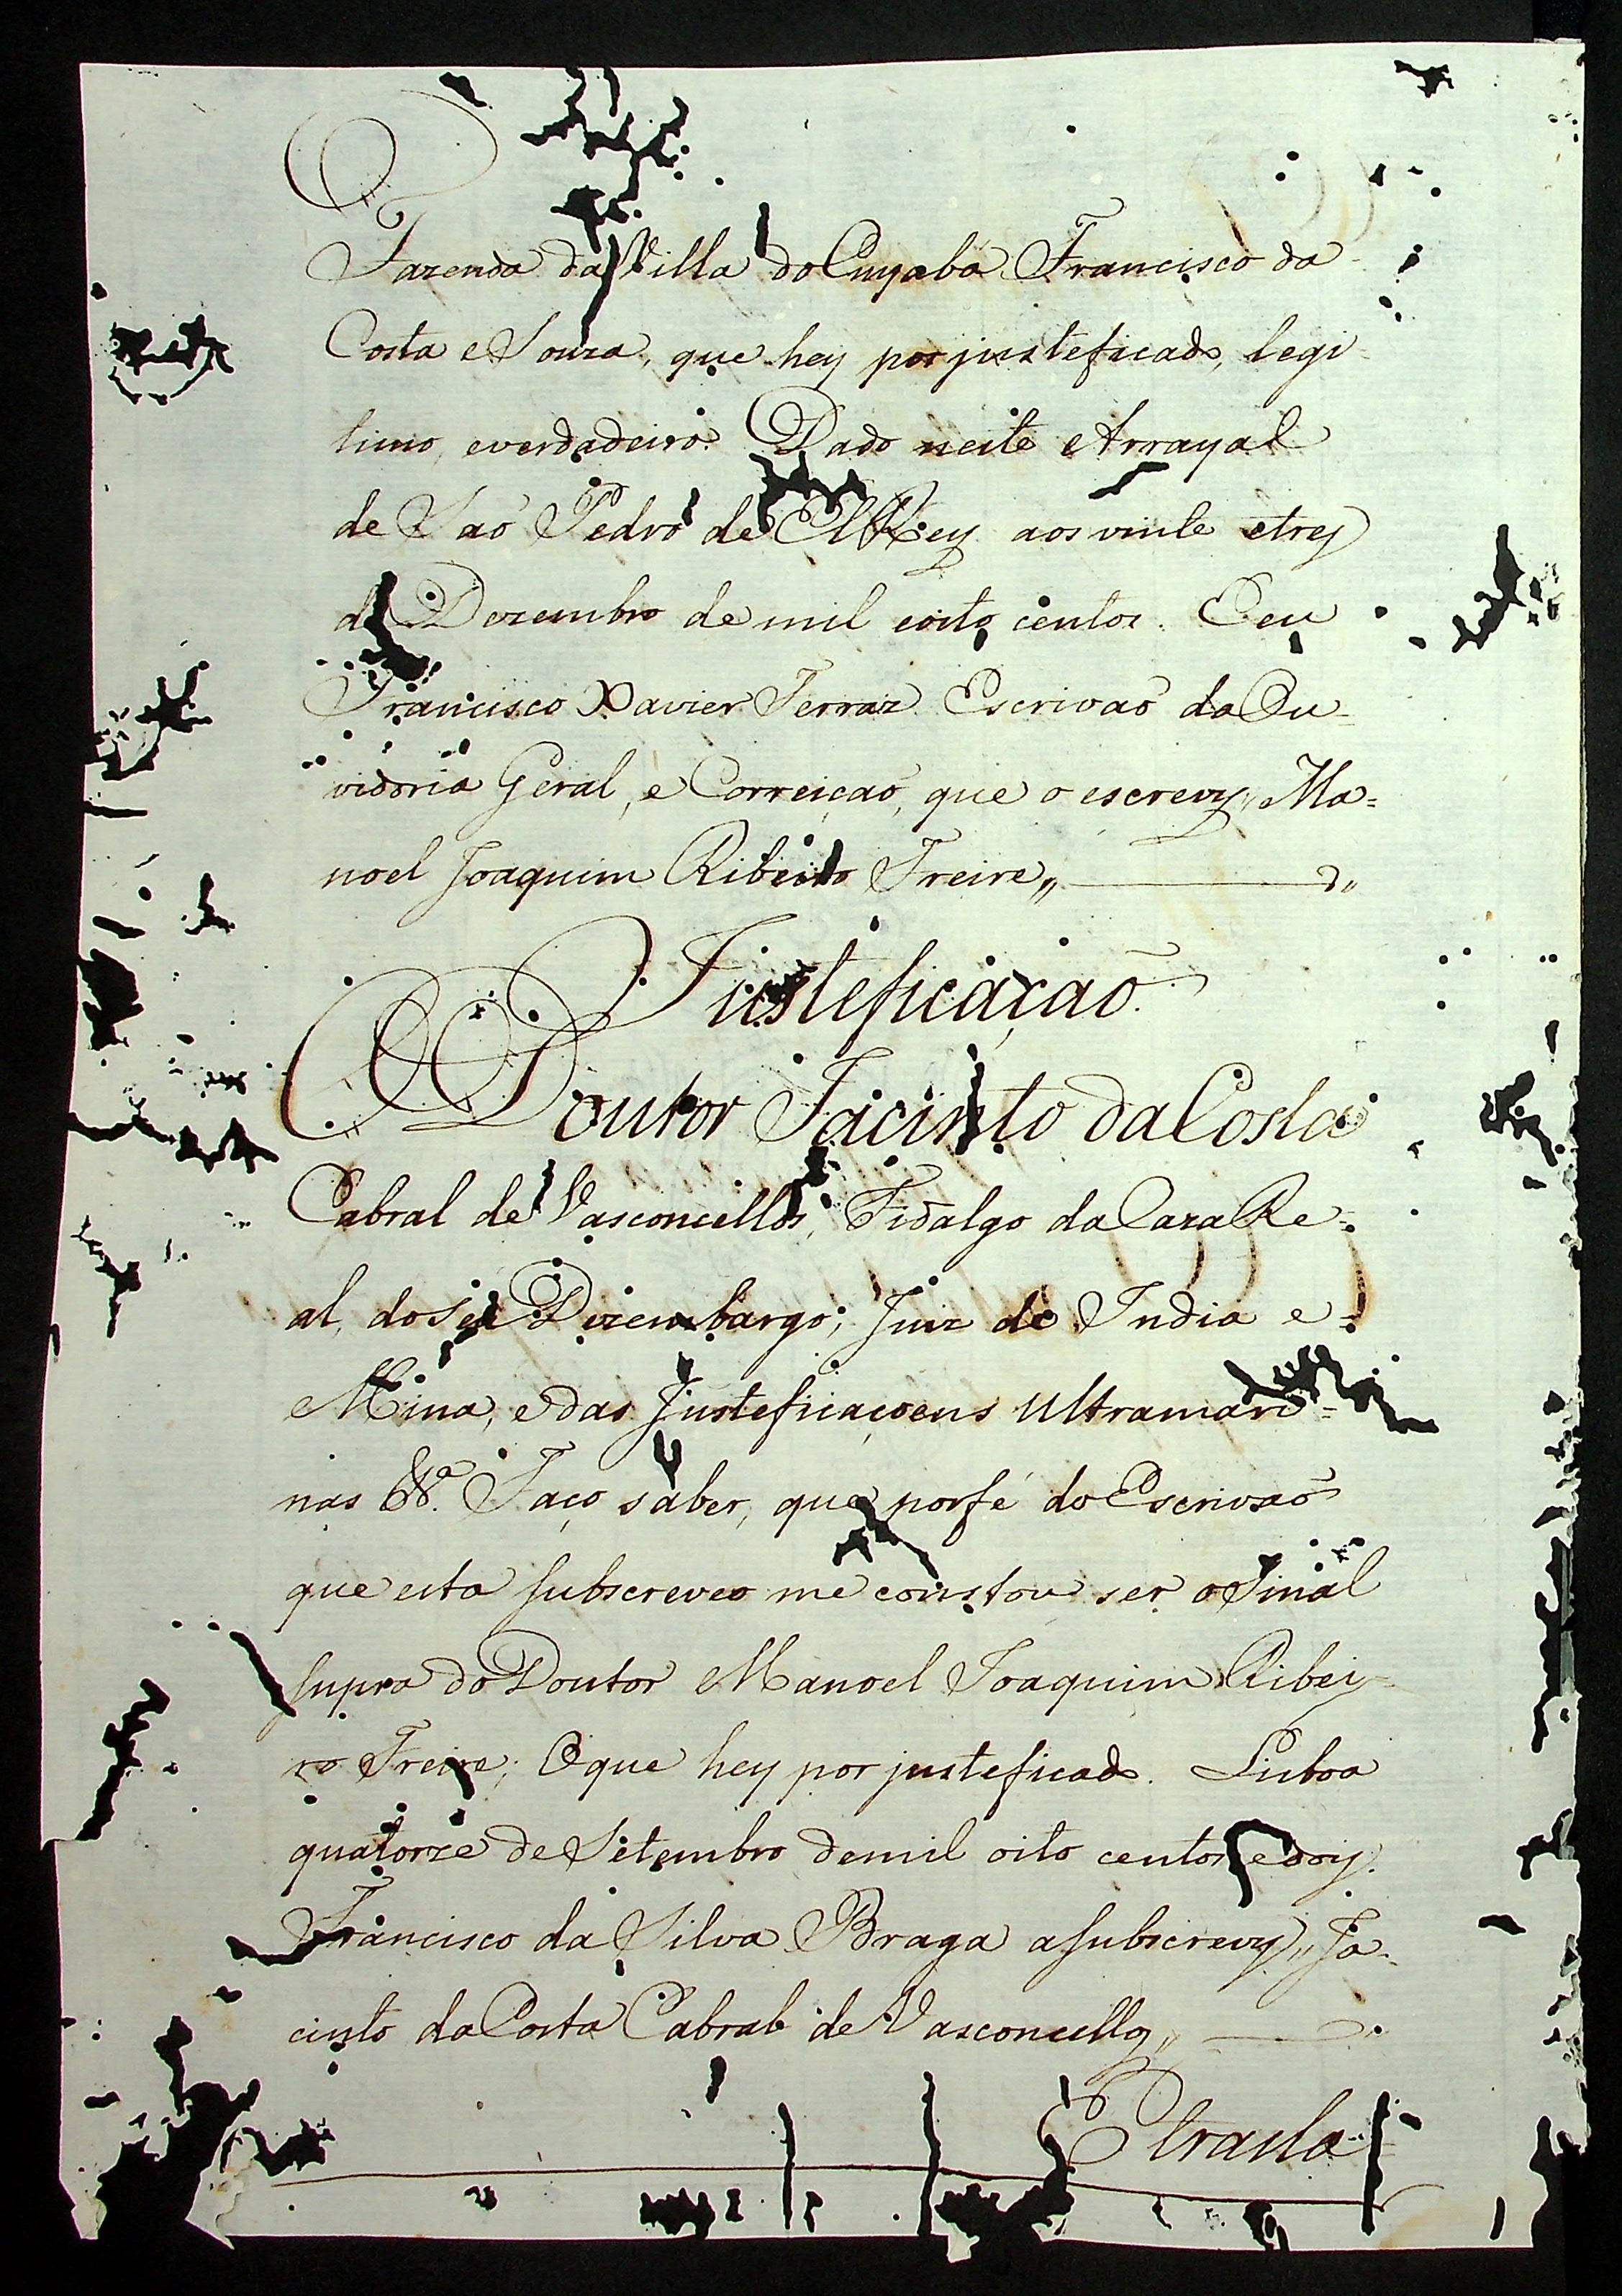 Fazenda da Villa do Cuyabá Francisco da
Costa e Souza, que hey por justeficado, legi-
timo, everdadeiro. Dado neste Arrayal
de Saõ Pedro de ElRey aos vinte etres
de Dezembro de mil eoito centos. Eeu
Francisco Xavier Ferraz Escrivaõ da Ou-
vidoria Geral, e Correiçaõ, que o escrevy,, Ma=
noel Joaquim Ribeiro Freire,,
Justeficaçaõ.
O Doutor Jacinto da Costa
Cabral de Vasconcellos, Fidalgo da Caza Re=
al, do seu Dezembargo; Juiz de India e=
Mina, e das Justeficaçoens Ultramari=
nas &ª. Faço saber, que por fé do Escrivaõ
que esta subscreveo me constou ser o Sinal
supra do Doutor Manoel Joaquim Ribey=
ro Freire; O que hey por justeficado. Lisboa
quatorze de Setembro demil oito centos edoiz.
Francisco da Silva Braga a subscrevy,, Ja-
cinto da Costa Cabral de Vasconcellos,,
E trasla-